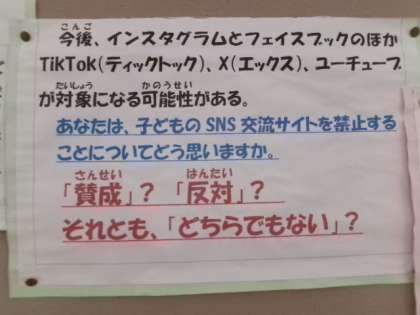 こんご
今後、インスタグラムとフェイスブックのほか
TikTok(ティックトック)、X(エックス)、ユーチューブ
たいしょう かのうせい
が対象になる可能性がある。
あなたは、子どものSNS交流サイトを禁止する
ことについてどう思いますか。
さんせい はんたい
「賛成」? 「反対」?
それとも、「どちらでもない」?